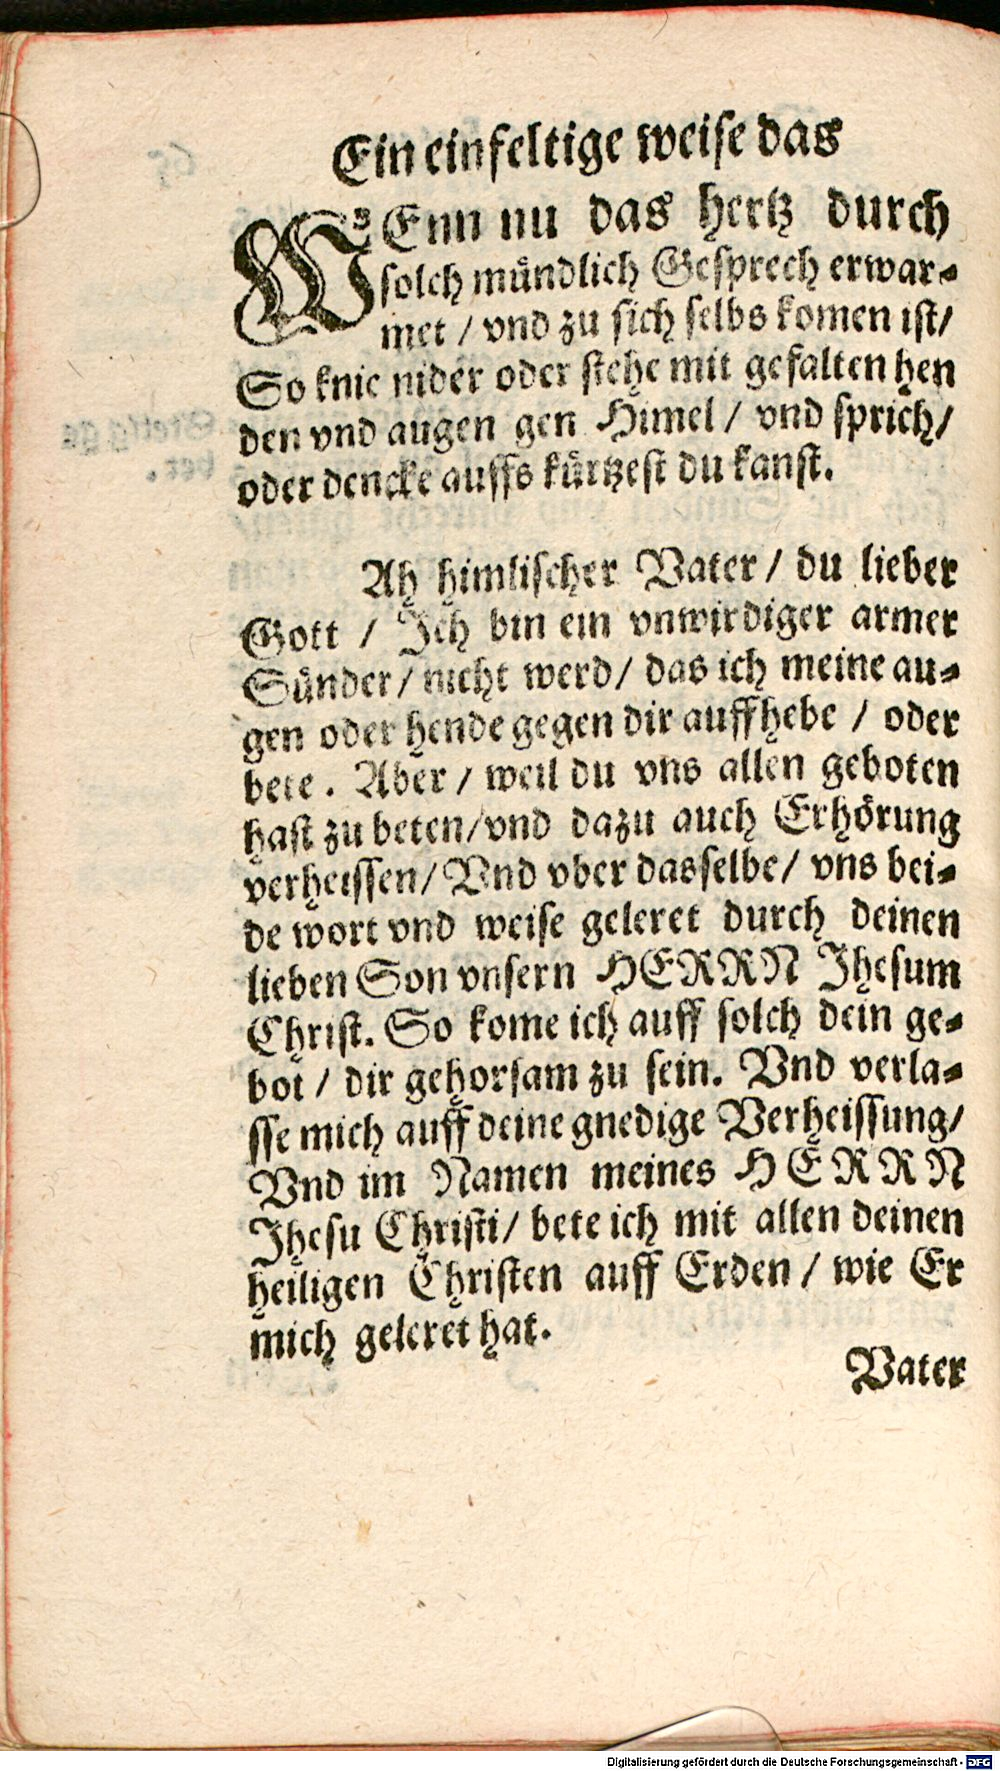 Ein einfeltige weise das
WEnn nu das hertz durch
solch mündlich Gesprech erwar⸗
met / vnd zu sich selbs komen ist/
So knie nider oder stehe mit gefalten hen
den vnd augen gen Himel / vnd sprich/
oder dencke auffs kürtzest du kanst.
Ah himlischer Vater / du lieber
Gott / Ich bin ein vnwirdiger armer
Sünder / nicht werd / das ich meine au⸗
gen oder hende gegen dir auffhebe / oder
bete. Aber / weil du vns allen geboten
hast zu beten/vnd dazu auch Erhörung
verheissen/ Vnd vber dasselbe/ vns bei⸗
de wort vnd weise geleret durch deinen
lieben Son vnsern HERRN Jhesum
Christ. So kome ich auff solch dein ge⸗
bot / dir gehorsam zu sein. Vnd verla⸗
sse mich auff deine gnedige Verheissung/
Vnd im Namen meines HERRN
Jhesu Christi/ bete ich mit allen deinen
heiligen Christen auff Erden / wie Er
mich geleret hat.
Vater
Digitalisierung gefördert durch die Deutsche Forschungsgemeinschaft - DFG